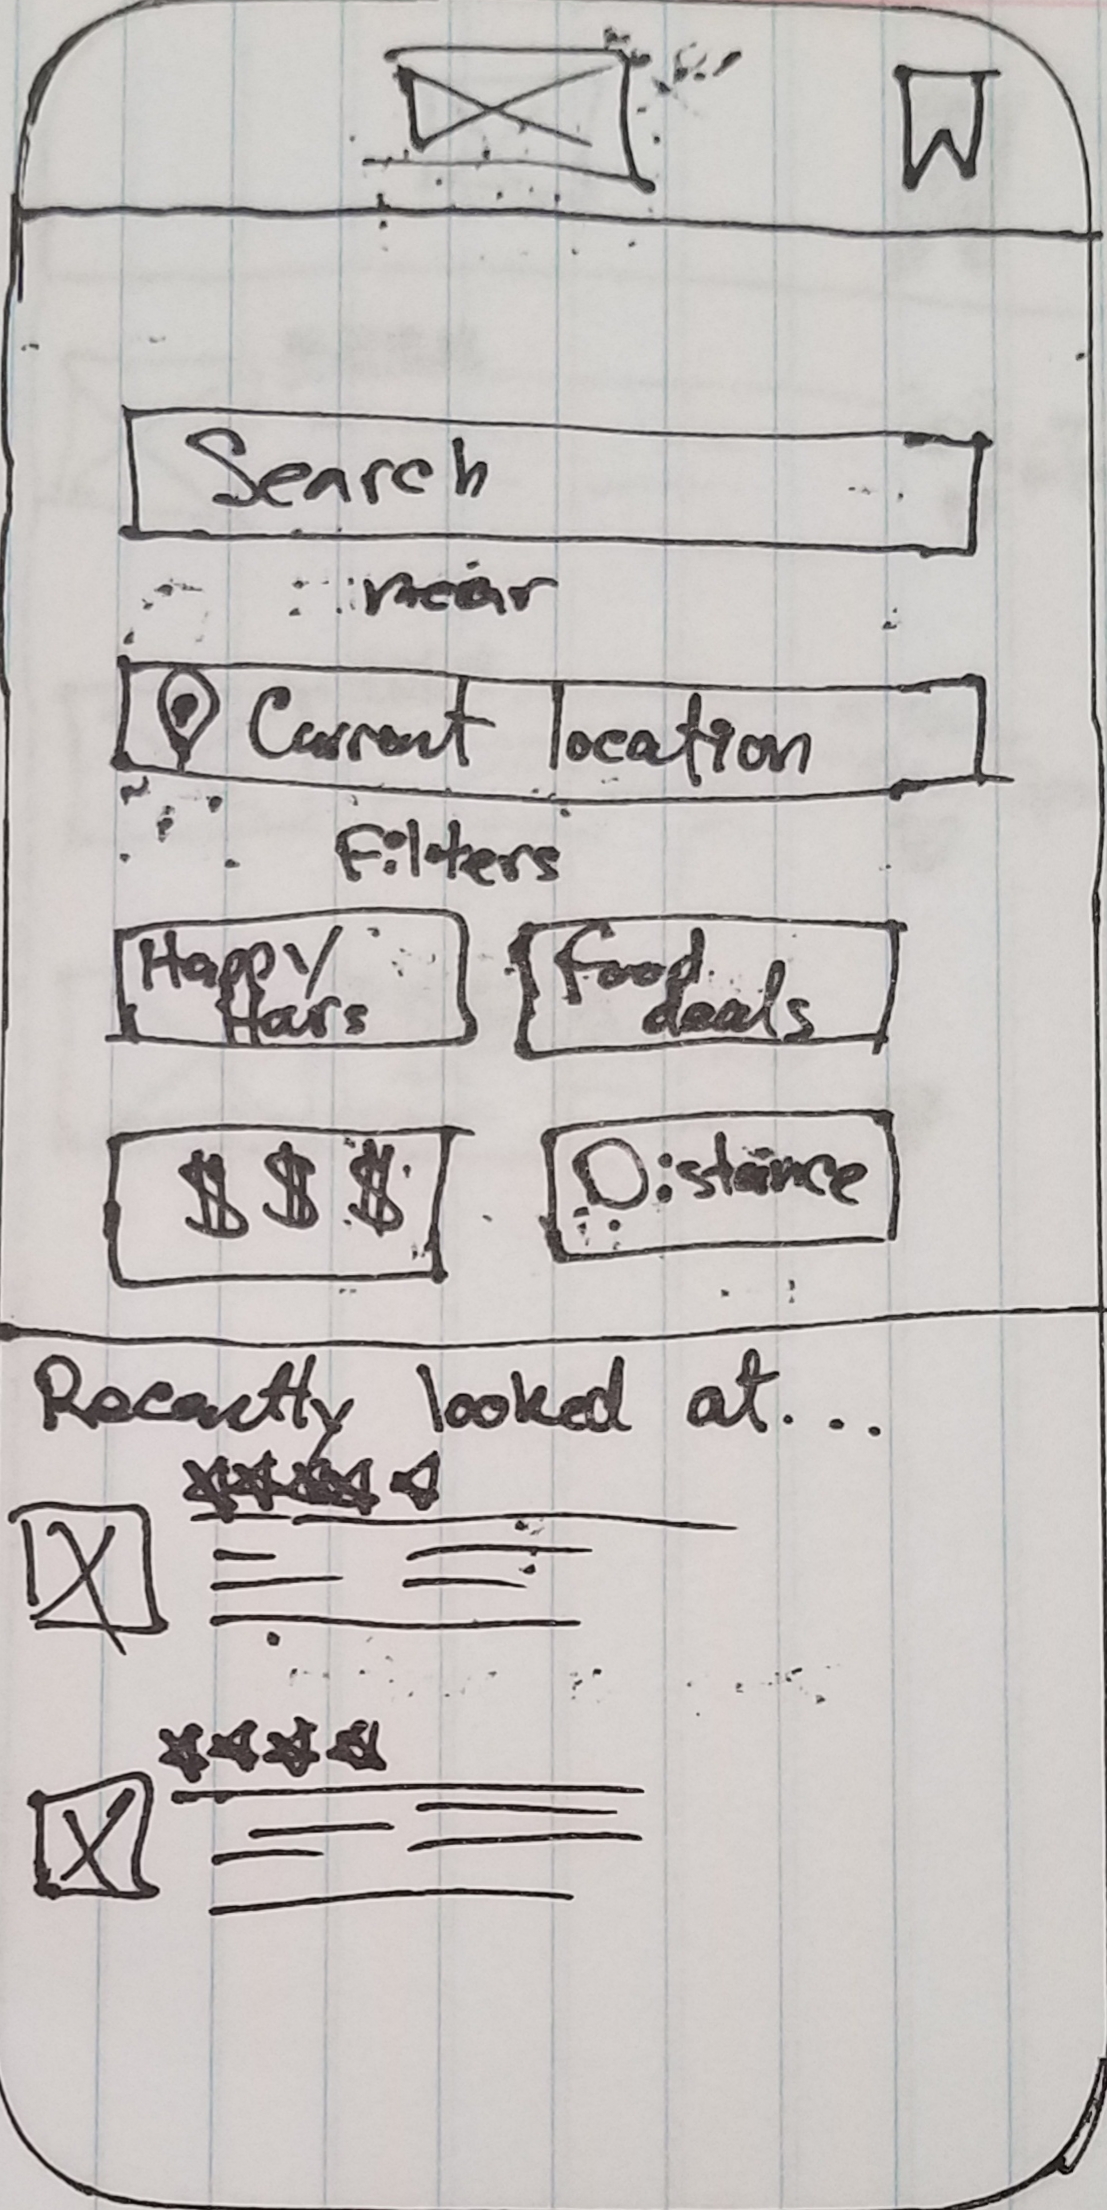 Search
near
Current location
Filters
Happy
Hars
Food
deals
$ $ $
Distance
Recently looked at...